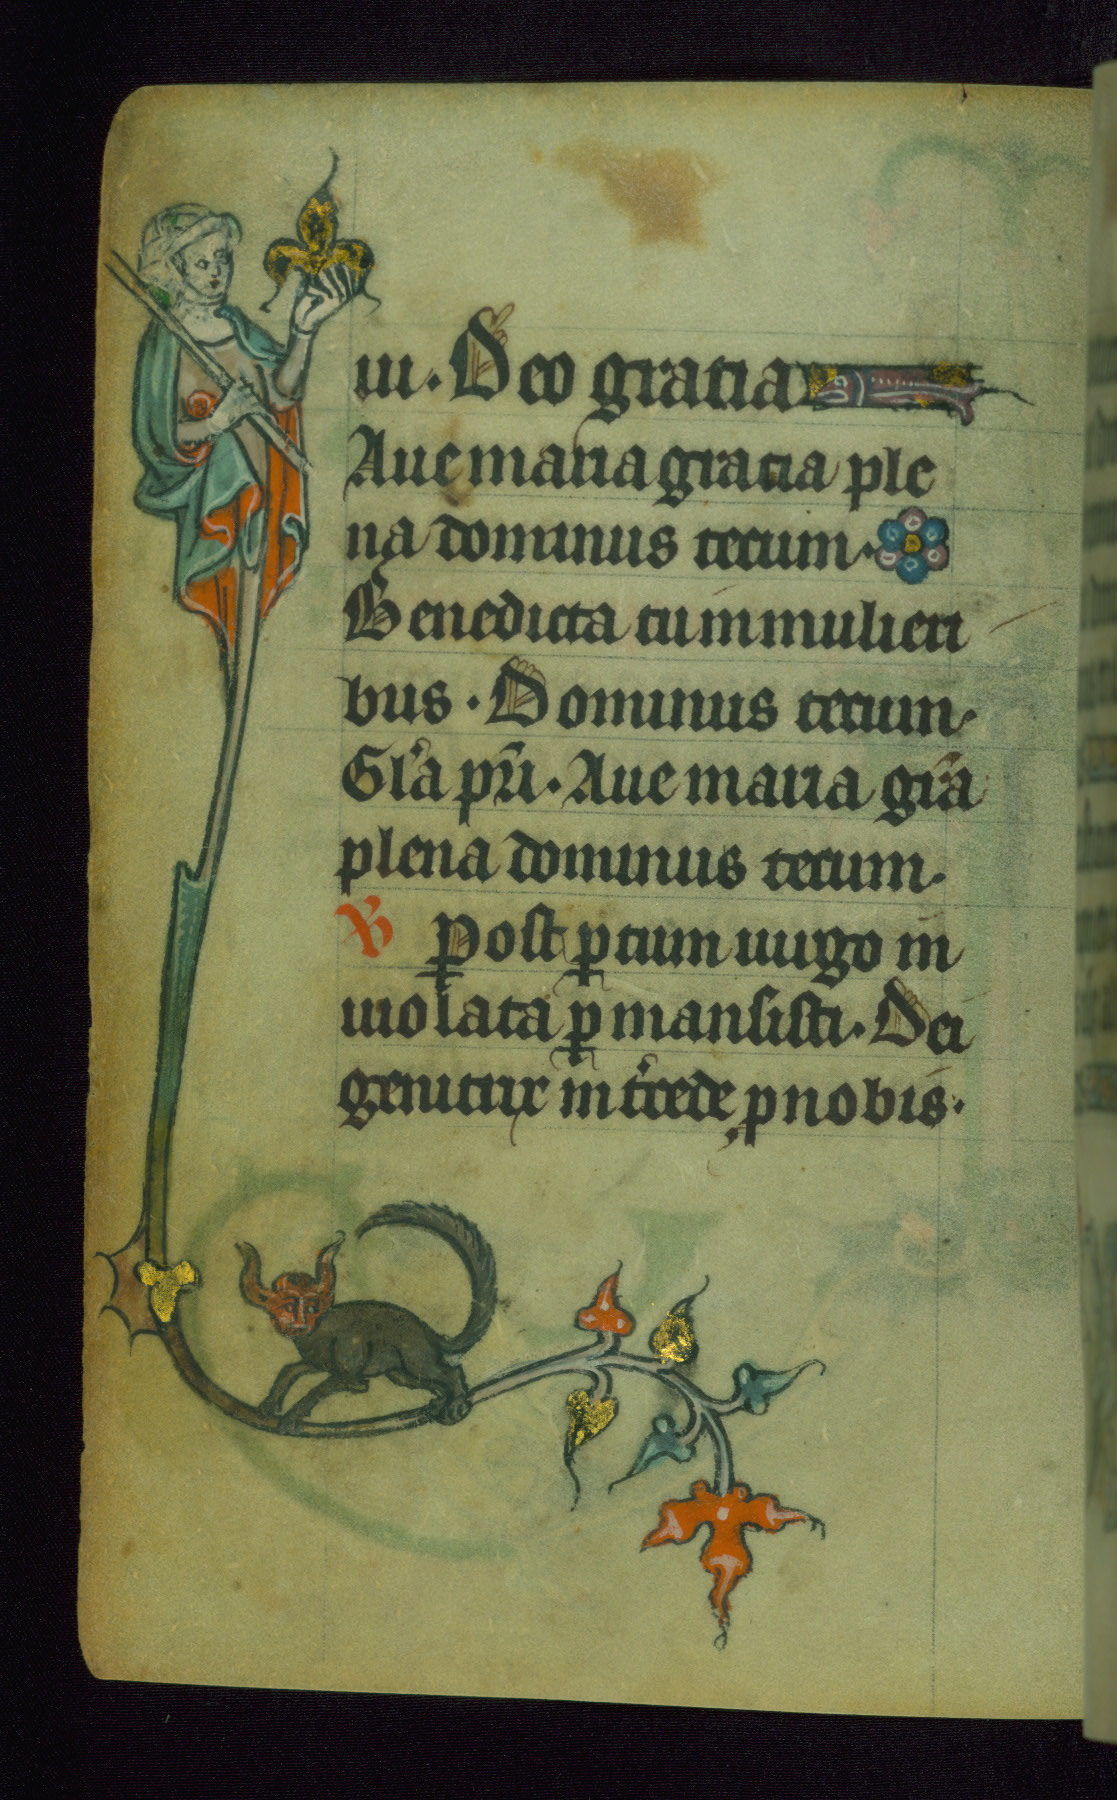 ui. Deo gracia
Aue maria gracia ple
na dominus tecum.
Benedicta tu in mulieri
bus. Dominus tecum.
Gl'a pr̄i. Aue maria gr̄a
plena dominus tecum.
V̄ Post ꝑtum uirgo in
uiolata ꝑmansisti. Dei
genitrix intᵉcede ꝓ nobis.